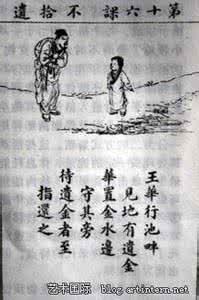 第十六課 不拾遺
王華行池畔
見地有遺金
華置金水邊
守其旁
待遺金者至
指還之
艺术国际 blog.artintern.net